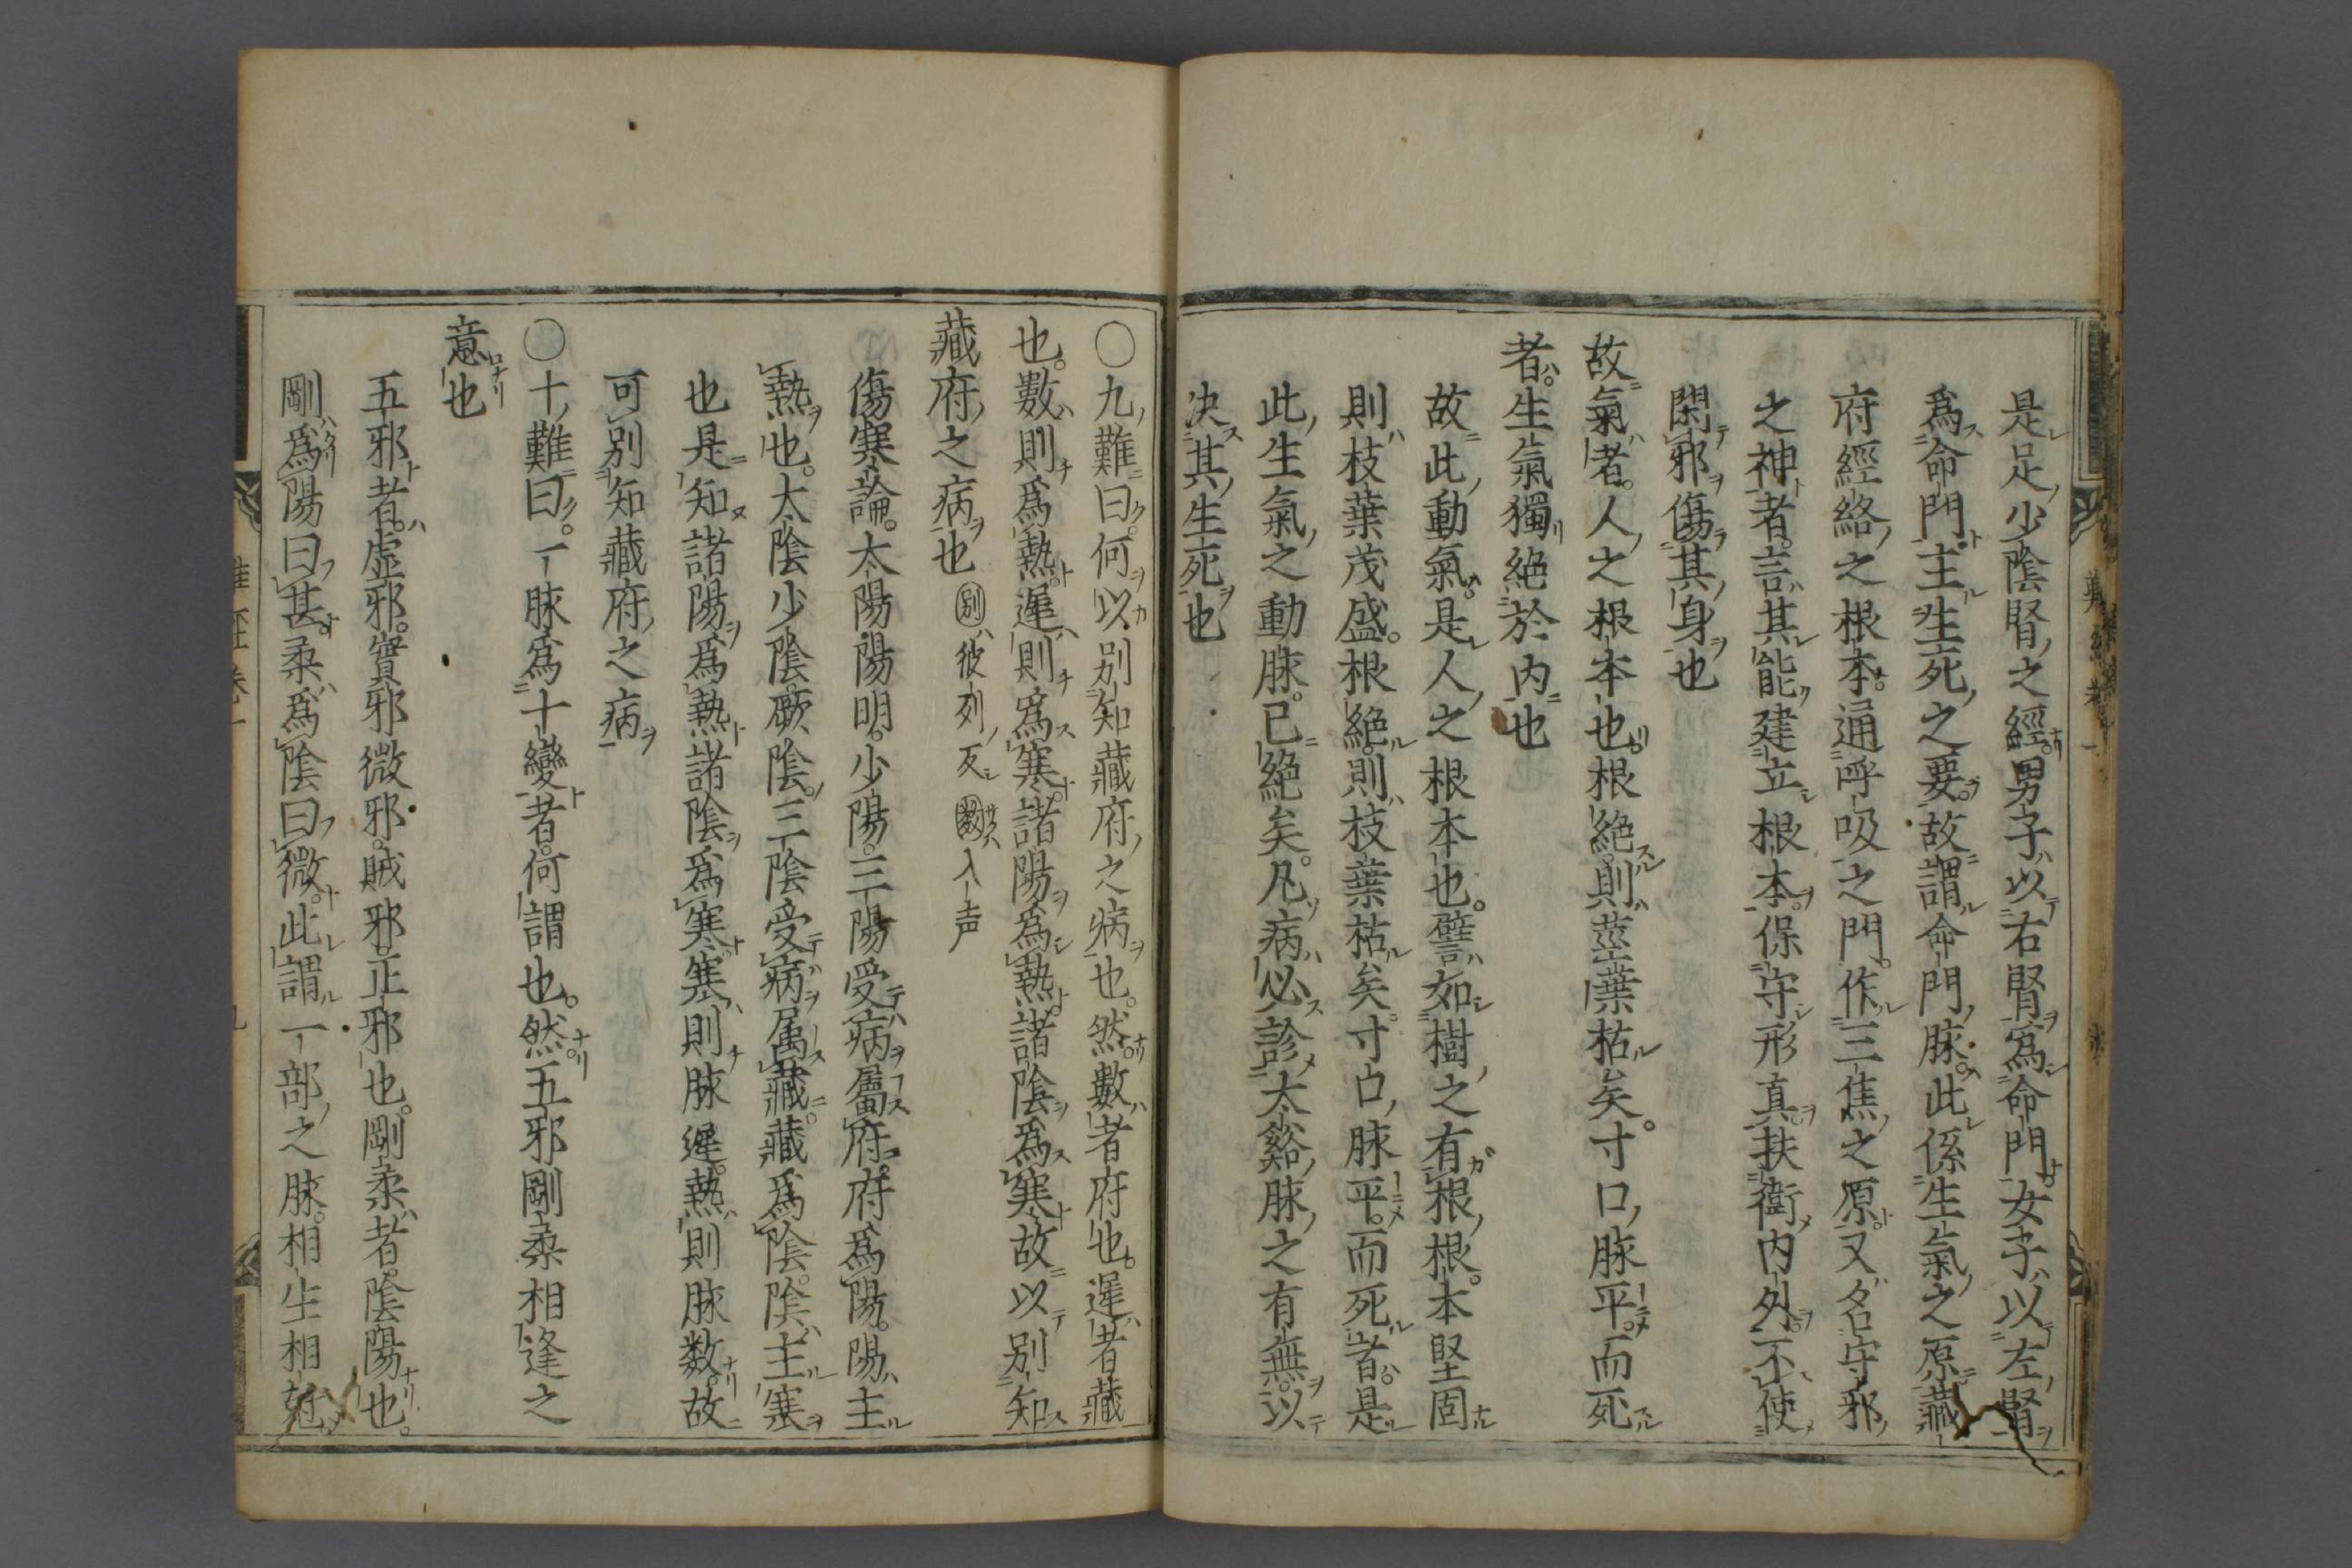 是足少陰腎之經男子以右腎爲命門女子以左腎
爲命門主生死之要故謂命門脉此係生氣之原藏
府經絡之根本通呼吸之門作三焦之原又名守邪
之神者言其能建立根本保守形真扶衛内外不使
閑邪傷其身也
故氣者人之根本也根絶則莖葉枯矣寸口脉平而死
者生氣獨絶於内也
故此動氣是人之根本也譬如樹之有根根本堅固
則枝葉茂盛根絶則枝葉枯矣寸口脉平而死者是
此生氣之動脉已絶矣凡病必診太谿脉之有無以
决其生死也
〇九難曰何以别知藏府之病也然數者府也遲者藏
也數則爲熱遲則爲寒諸陽爲熱諸陰爲寒故以别知
藏府之病也 别彼列反 數入声
傷寒論太陽陽明少陽三陽受病屬府府爲陽陽主
熱也太陰少陰厥陰三陰受病属藏藏爲陰陰主寒
也是知諸陽爲熱諸陰爲寒寒則脉遲熱則脉数故
可别知藏府之病
〇十難曰一脉爲十變者何謂也然五邪剛柔相逢之
意也
五邪者虚邪實邪微邪賊邪正邪也剛柔者陰陽也
剛爲陽曰甚柔爲陰曰微此謂一部之脉相生相尅